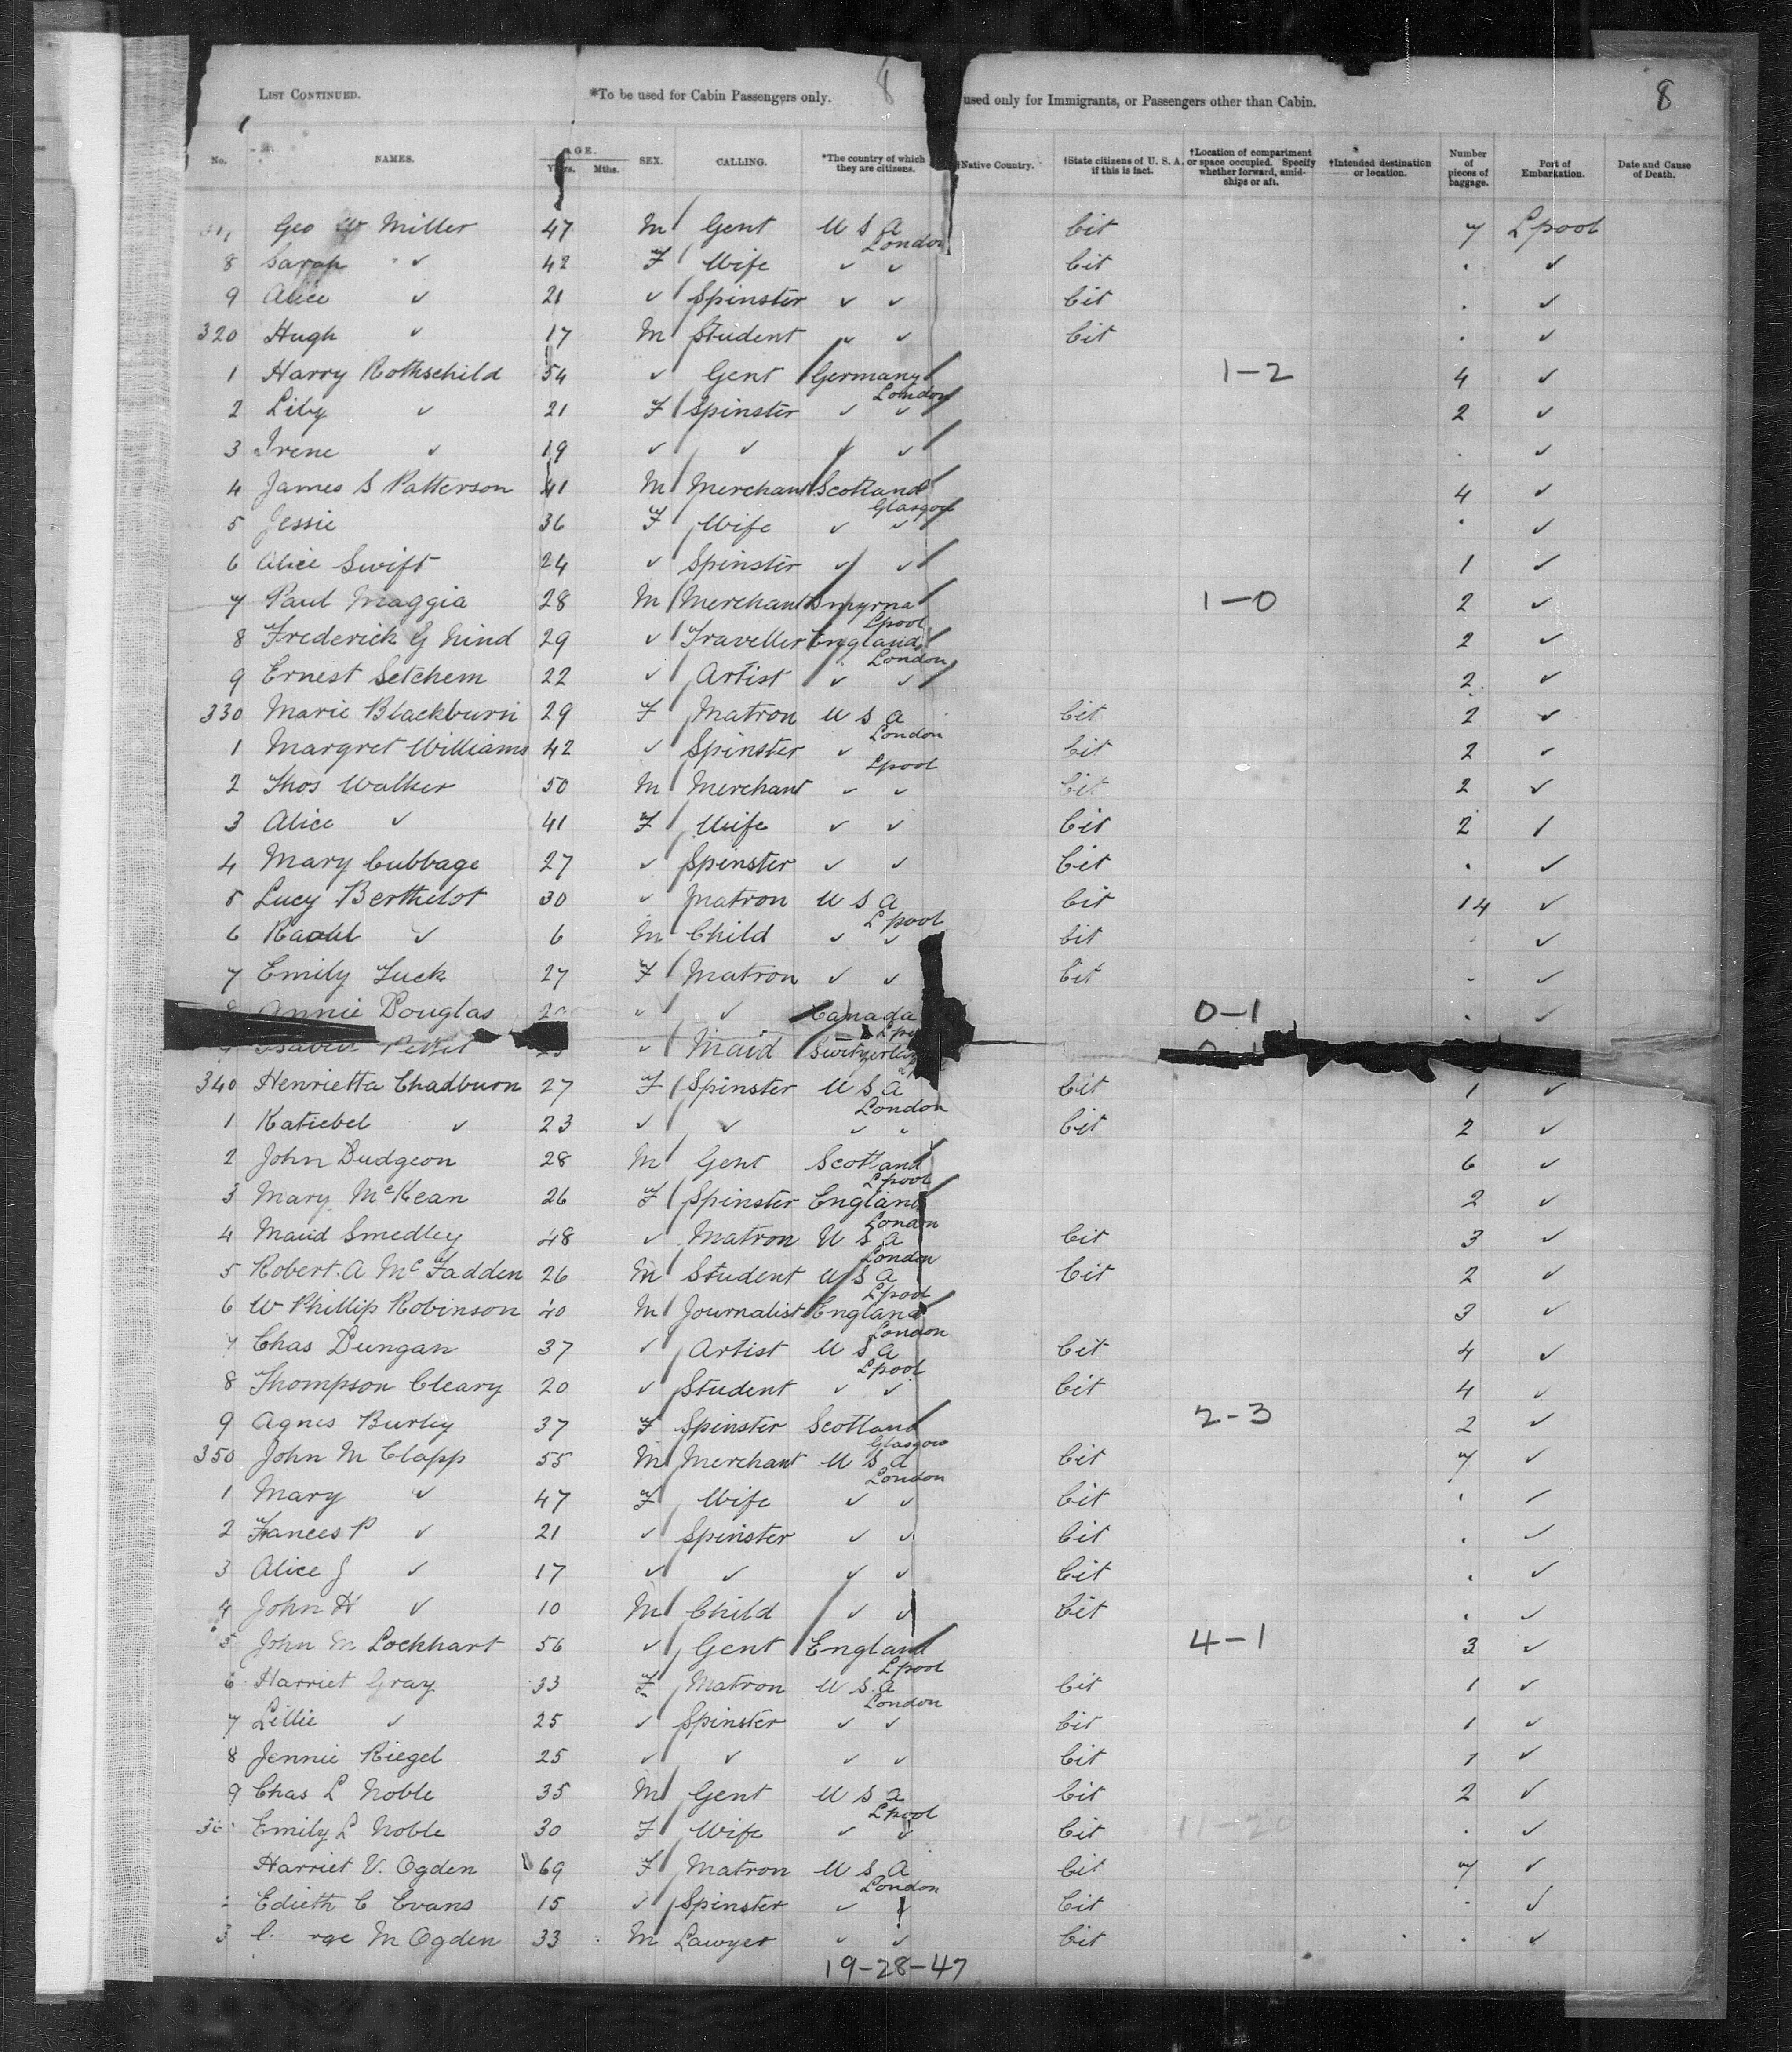 8
8
LIST CONTINUED. *To be used for Cabin Passengers only. used only for Immigrants, or Passengers other than Cabin.
No. NAMES. AGE. Mths. SEX. CALLING. *The country of which they are citizens. †Native Country. †State citizens of U. S. A. if this is fact. †Location of compartment or space occupied. Specify whether forward, amidships or aft. †Intended destination or location. Number of pieces of baggage. Port of Embarkation. Date and Cause of Death.
Geo W Miller 47 M Gent U S A London Cit 7 Lpool
8 Sarah ✓ 42 F Wife ✓ ✓ Cit . ✓
9 Alice ✓ 21 ✓ Spinster ✓ ✓ Cit . ✓
320 Hugh ✓ 17 M Student ✓ ✓ Cit . ✓
1 Harry Rothschild 54 ✓ Gent Germany London 1-2 4 ✓
2 Lily ✓ 21 F Spinster ✓ ✓ 2 ✓
3 Irene ✓ 19 ✓ ✓ ✓ ✓ . ✓
4 James S Patterson 41 M Merchant Scotland Glasgow 4 ✓
5 Jessie 36 F Wife ✓ ✓ . ✓
6 Alice Swift 24 ✓ Spinster ✓ ✓ 1 ✓
7 Paul Maggia 28 M Merchant Smyrna Lpool 1-0 2 ✓
8 Frederick G Nind 29 ✓ Traveller England London 2 ✓
9 Ernest Setchem 22 ✓ Artist ✓ ✓ 2 ✓
330 Marie Blackburn 29 F Matron U S A London Cit 2 ✓
1 Margret Williams 42 ✓ Spinster ✓ Lpool Cit 2 ✓
2 Thos Walker 50 M Merchant ✓ ✓ Cit 2 ✓
3 Alice ✓ 41 F Wife ✓ ✓ Cit 2 ✓
4 Mary Cubbage 27 ✓ Spinster ✓ ✓ Cit . ✓
5 Lucy Berthelot 30 ✓ Matron U S A Lpool Cit 14 ✓
6 ✓ 6 M Child ✓ ✓ Cit . ✓
7 Emily Tuck 27 F Matron ✓ ✓ Cit . ✓
Annie Douglas ✓ ✓ Canada 0-1 . ✓
✓ Maid
340 Henrietta Chadburn 27 F Spinster U S A London Cit 1 ✓
1 Katiebel ✓ 23 ✓ ✓ ✓ ✓ Cit 2 ✓
2 John Dudgeon 28 M Gent Scotland Lpool 6 ✓
3 Mary McKean 26 F Spinster England London 2 ✓
4 Maud Smedley 48 ✓ Matron U S A London Cit 3 ✓
5 Robert A McFadden 26 M Student U S A Lpool Cit 2 ✓
6 W Phillip Robinson 40 M Journalist England London 3 ✓
7 Chas Dungan 37 ✓ Artist U S A Lpool Cit 4 ✓
8 Thompson Cleary 20 ✓ Student ✓ ✓ Cit 4 ✓
9 Agnes Burley 37 F Spinster Scotland Glasgow 2-3 2 ✓
350 John M Clapp 55 M Merchant U S A London Cit 7 ✓
1 Mary ✓ 47 F Wife ✓ ✓ Cit . ✓
2 Frances P ✓ 21 ✓ Spinster ✓ ✓ Cit . ✓
3 Alice J ✓ 17 ✓ ✓ ✓ ✓ Cit . ✓
4 John H ✓ 10 M Child ✓ ✓ Cit . ✓
5 John M Lockhart 56 ✓ Gent England Lpool 4-1 3 ✓
6 Harriet Gray 33 F Matron U S A London Cit 1 ✓
7 Lillie ✓ 25 ✓ Spinster ✓ ✓ Cit 1 ✓
8 Jennie Riegel 25 ✓ ✓ ✓ ✓ Cit 1 ✓
9 Chas L Noble 35 M Gent U S A Lpool Cit 2 ✓
Emily L Noble 30 F Wife ✓ ✓ Cit 11-20 . ✓
Harriet V. Ogden 69 F Matron U S A London Cit 7 ✓
Edieth C Evans 15 ✓ Spinster ✓ ✓ Cit . ✓
3 M Ogden 33 M Lawyer ✓ ✓ Cit . ✓
19-28-47